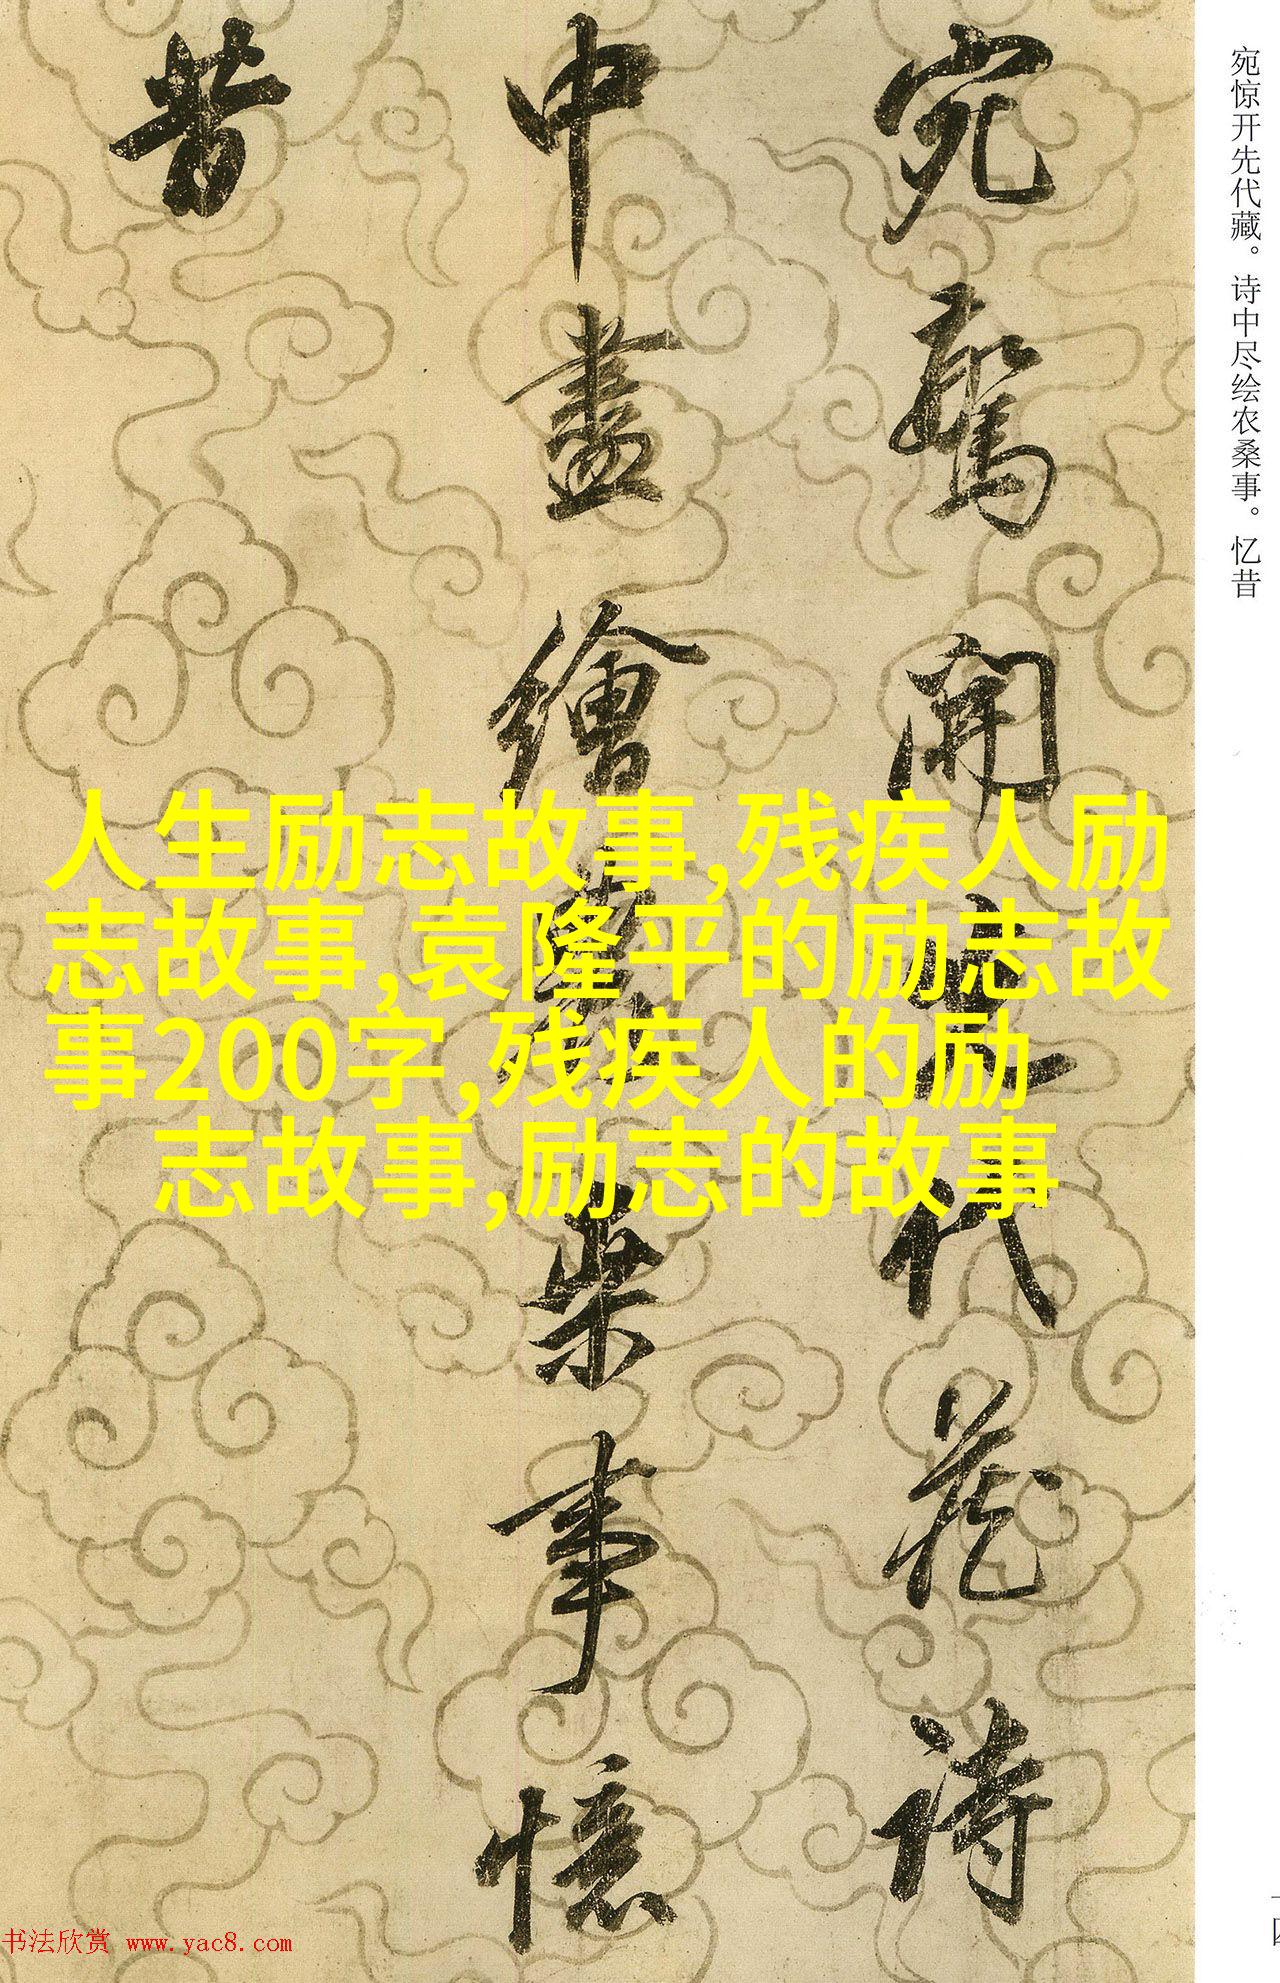 宛惊开先代藏。诗中尽绘农桑事。忆昔
宛驚開先代藏詩
中盡繪農桒事憶
昔
人生励志故事,残疾人励
志故事,袁隆平的励志故
事200字,残疾人的励
志故事,励志的故事
书法欣赏 www.yac8.com